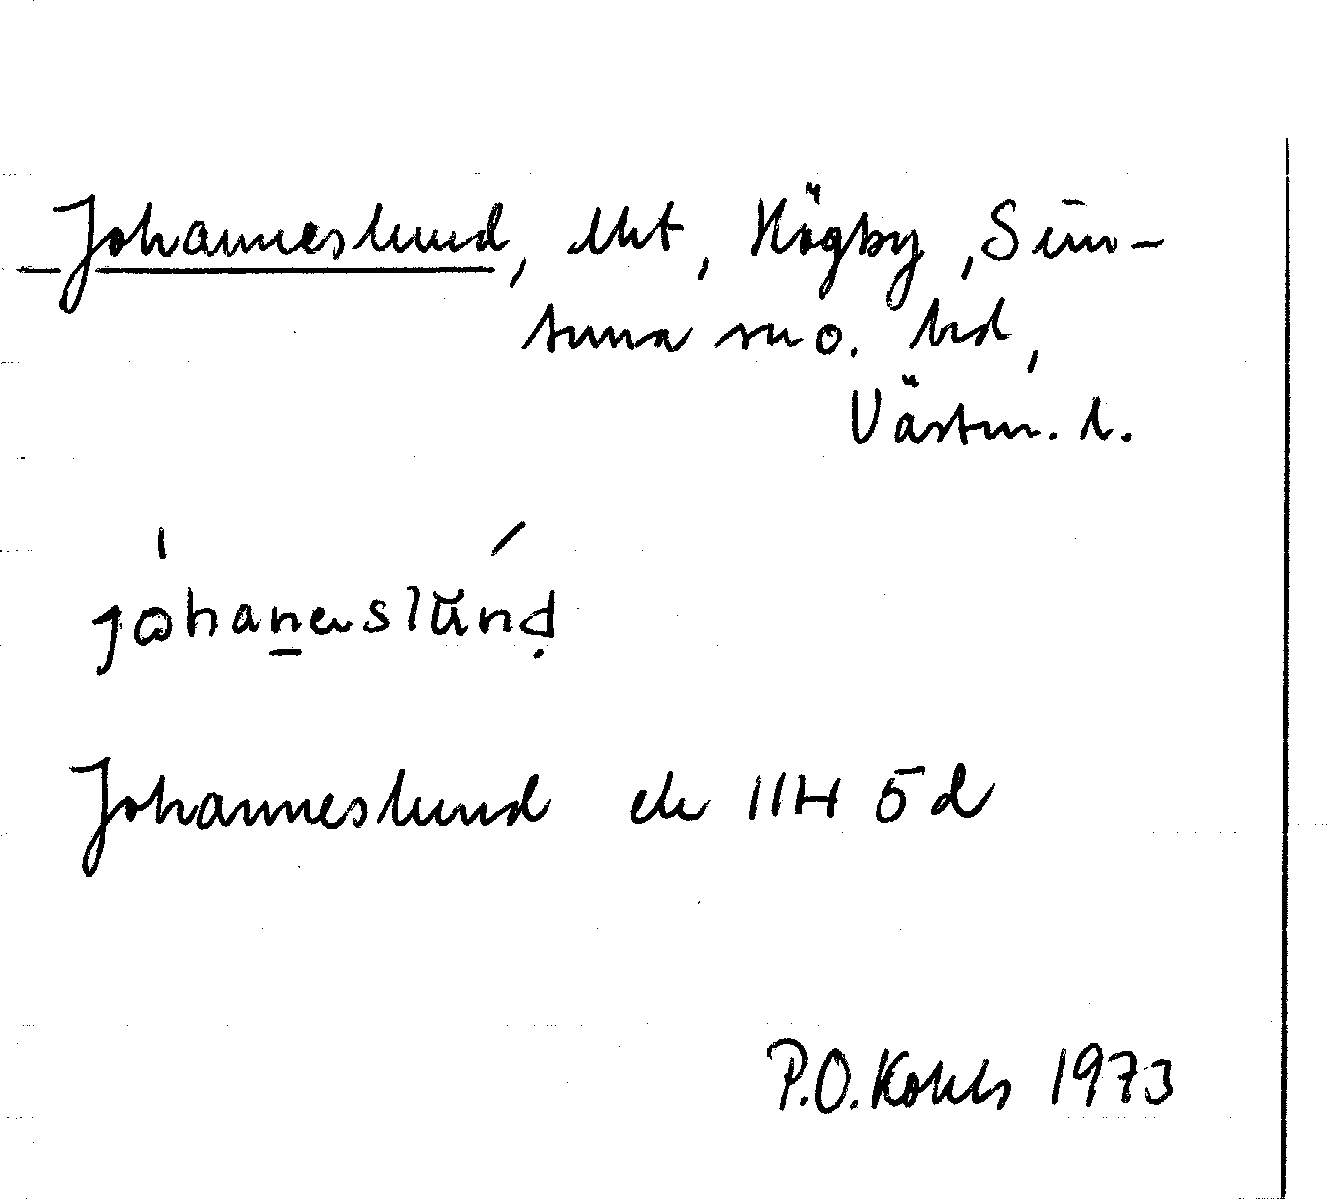 Johanneslund, lht, Högby, Sim-
tuna sn o. hd,
Västm. l.
johaneslund
Johanneslund ek 11H 5d
P.O. Kohls 1973